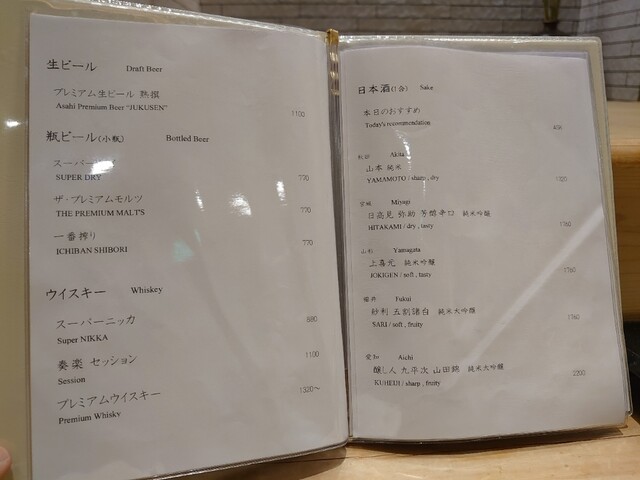 生ビール Draft Beer
プレミアム生ビール 熟撰
Asahi Premium Beer "JUKUSEN" 1100
瓶ビール(小瓶) Bottled Beer
スーパードライ
SUPER DRY 770
ザ・プレミアムモルツ
THE PREMIUM MALT'S 770
一番搾り
ICHIBAN SHIBORI 770
ウイスキー Whiskey
スーパーニッカ 880
Super NIKKA
奏楽 セッション 1100
Session
プレミアムウイスキー 1320～
Premium Whisky
日本酒(1合) Sake
本日のおすすめ
Today's recommendation ASK
秋田 Akita
山本 純米
YAMAMOTO / sharp, dry 1320
宮城 Miyagi
日高見 弥助 芳醇辛口 純米吟醸
HITAKAMI / dry, tasty 1760
山形 Yamagata
上喜元 純米吟醸
JOKIGEN / soft, tasty 1760
福井 Fukui
紗利 五割諸白 純米大吟醸
SARI / soft, fruity 1760
愛知 Aichi
醸し人 九平次 山田錦 純米大吟醸
KUHEIJI / sharp, fruity 2200